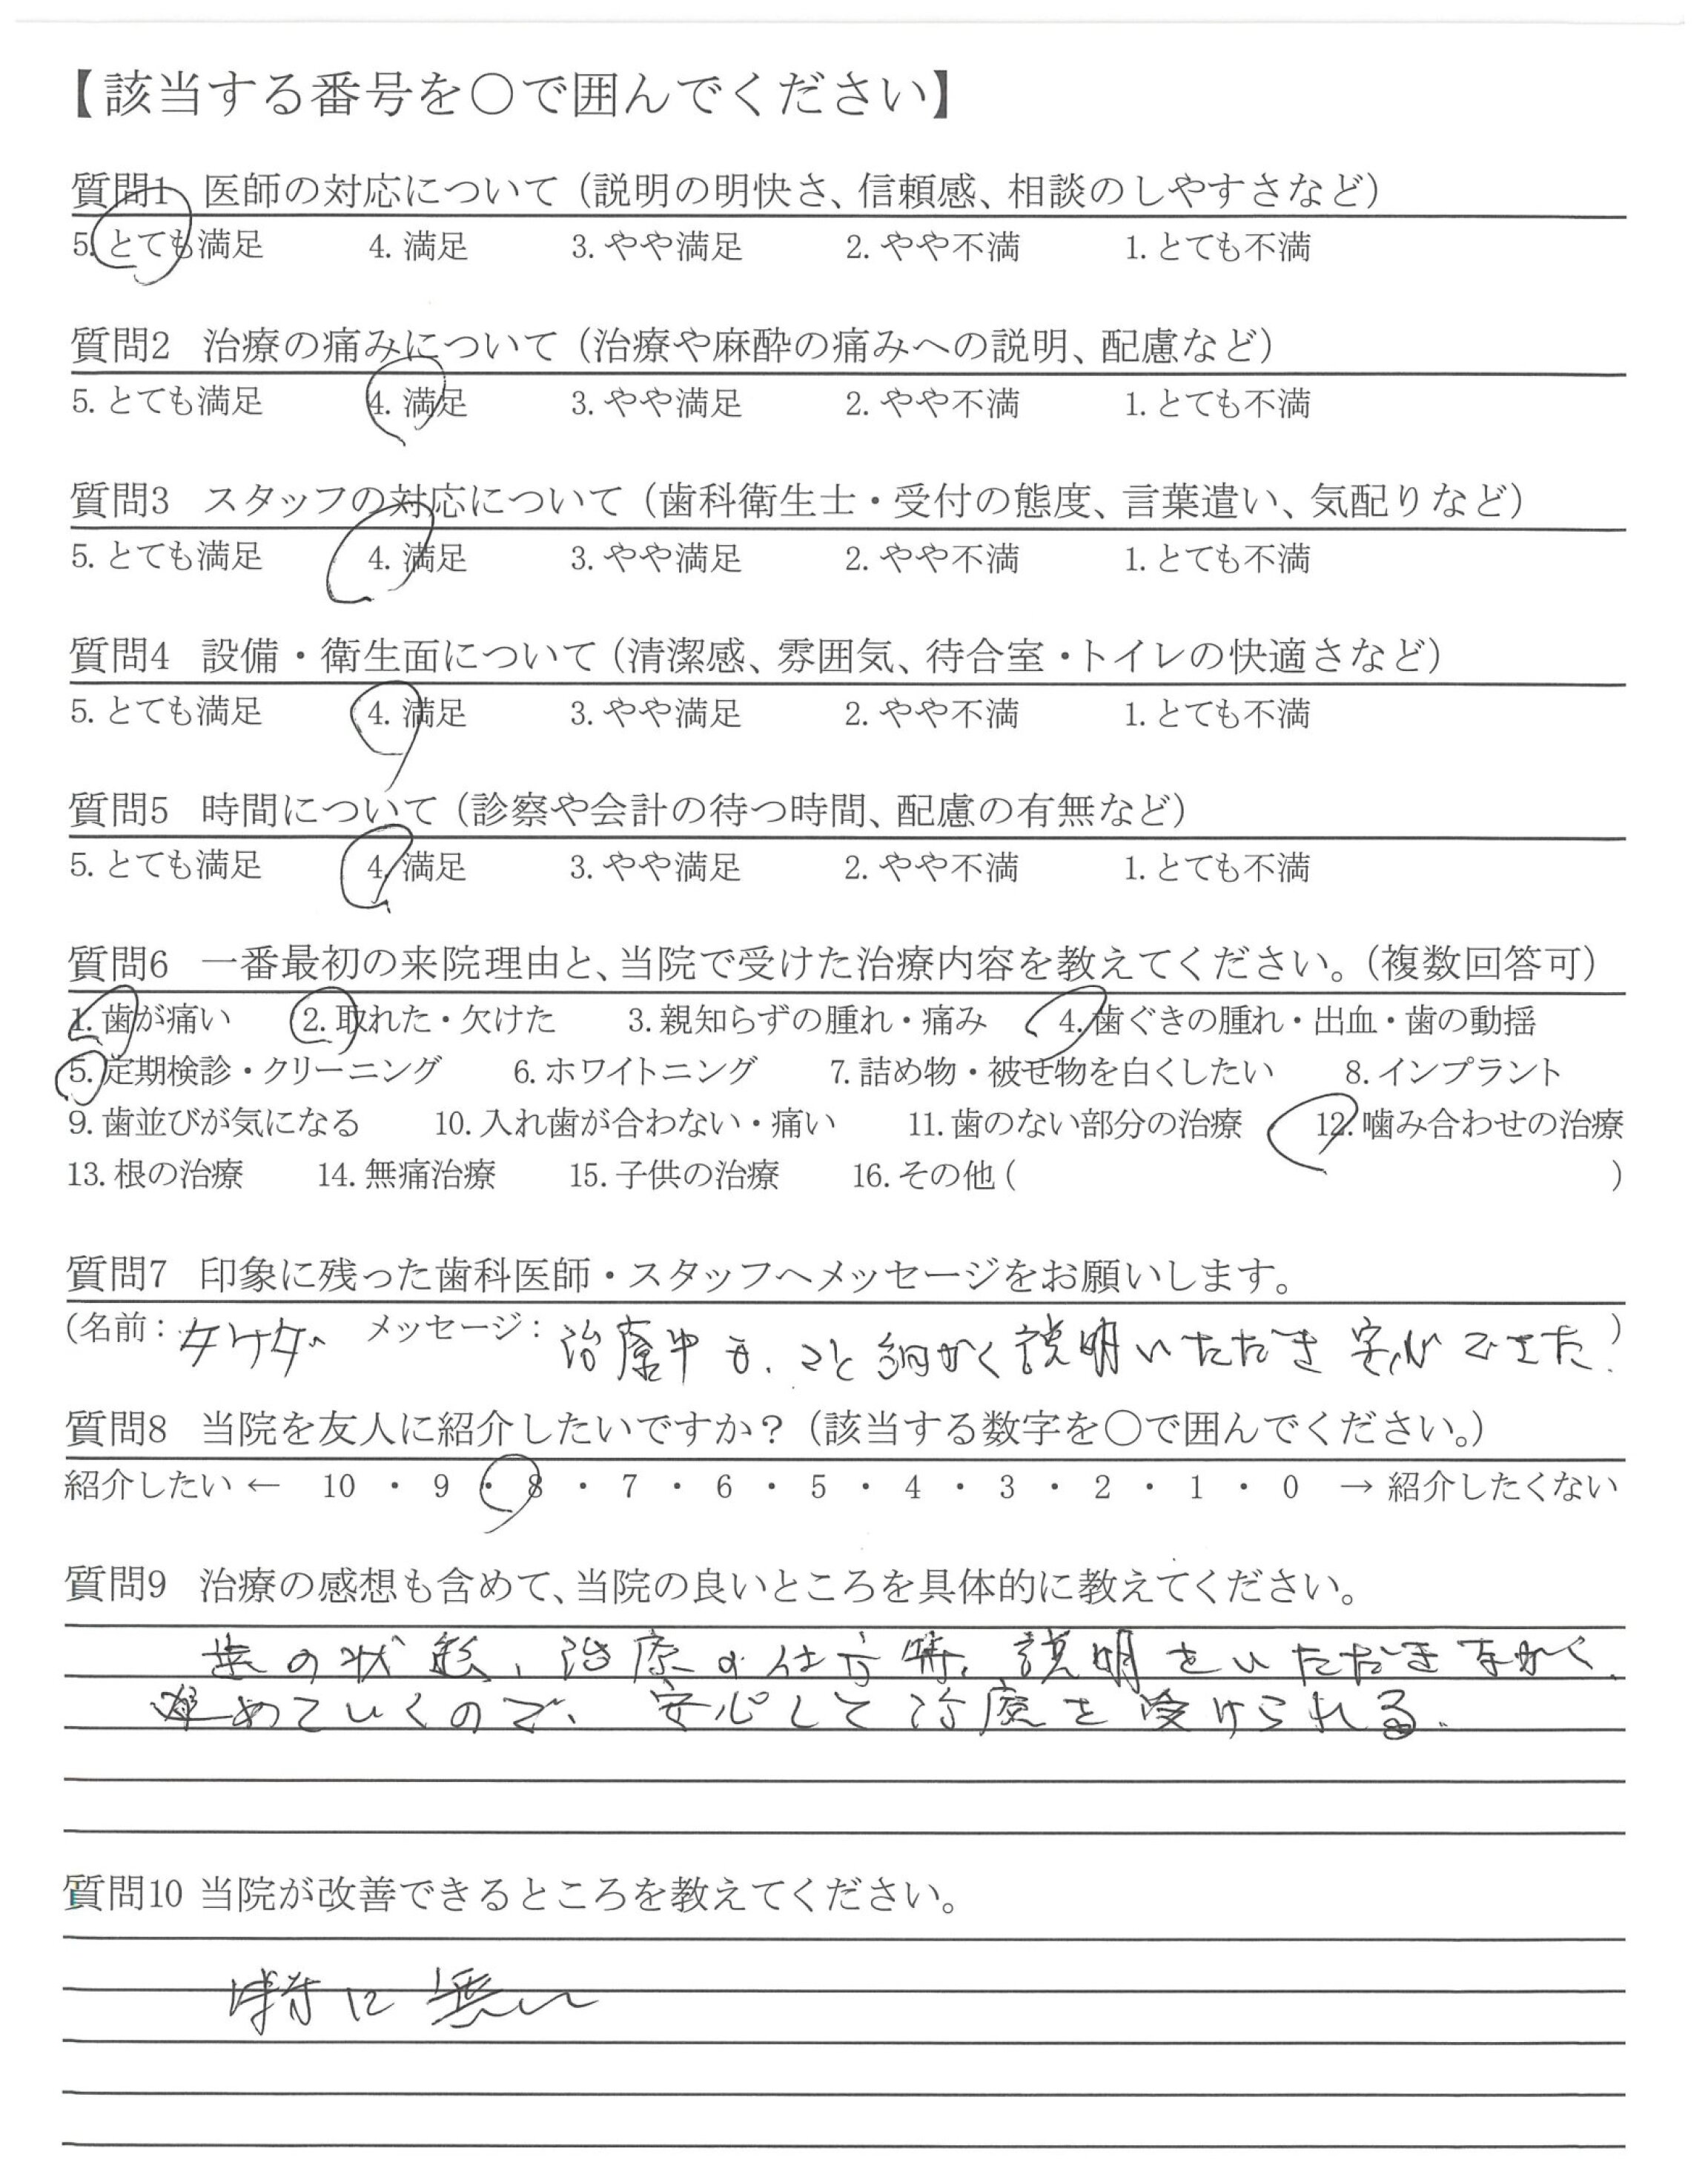 【該当する番号を〇で囲んでください】
質問1 医師の対応について（説明の明快さ、信頼感、相談のしやすさなど）
5. とても満足 4. 満足 3. やや満足 2. やや不満 1. とても不満
質問2 治療の痛みについて（治療や麻酔の痛みへの説明、配慮など）
5. とても満足 4. 満足 3. やや満足 2. やや不満 1. とても不満
質問3 スタッフの対応について（歯科衛生士・受付の態度、言葉遣い、気配りなど）
5. とても満足 4. 満足 3. やや満足 2. やや不満 1. とても不満
質問4 設備・衛生面について（清潔感、雰囲気、待合室・トイレの快適さなど）
5. とても満足 4. 満足 3. やや満足 2. やや不満 1. とても不満
質問5 時間について（診察や会計の待つ時間、配慮の有無など）
5. とても満足 4. 満足 3. やや満足 2. やや不満 1. とても不満
質問6 一番最初の来院理由と、当院で受けた治療内容を教えてください。（複数回答可）
1. 歯が痛い 2. 取れた・欠けた 3. 親知らずの腫れ・痛み 4. 歯ぐきの腫れ・出血・歯の動揺
5. 定期検診・クリーニング 6. ホワイトニング 7. 詰め物・被せ物を白くしたい 8. インプラント
9. 歯並びが気になる 10. 入れ歯が合わない・痛い 11. 歯のない部分の治療 12. 噛み合わせの治療
13. 根の治療 14. 無痛治療 15. 子供の治療 16. その他（ ）
質問7 印象に残った歯科医師・スタッフへメッセージをお願いします。
（名前：タケダ メッセージ：治療中も、こと細かく説明いただき安心できた！）
質問8 当院を友人に紹介したいですか？（該当する数字を〇で囲んでください。）
紹介したい ← 10 ・ 9 ・ 8 ・ 7 ・ 6 ・ 5 ・ 4 ・ 3 ・ 2 ・ 1 ・ 0 → 紹介したくない
質問9 治療の感想も含めて、当院の良いところを具体的に教えてください。
歯の状態、治療の仕方等、説明をいただきながら、
進めていくので、安心して治療を受けられる。
質問10 当院が改善できるところを教えてください。
特に無い